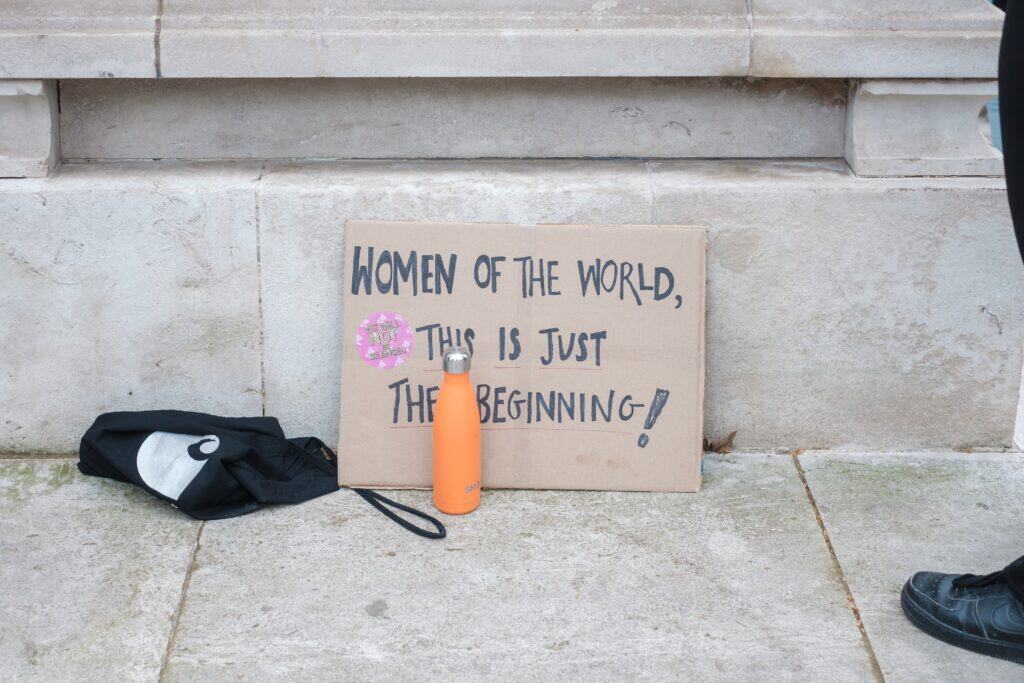 WOMEN OF THE WORLD,
THIS IS JUST
THE BEGINNING!
NOT
BE
SILENCED